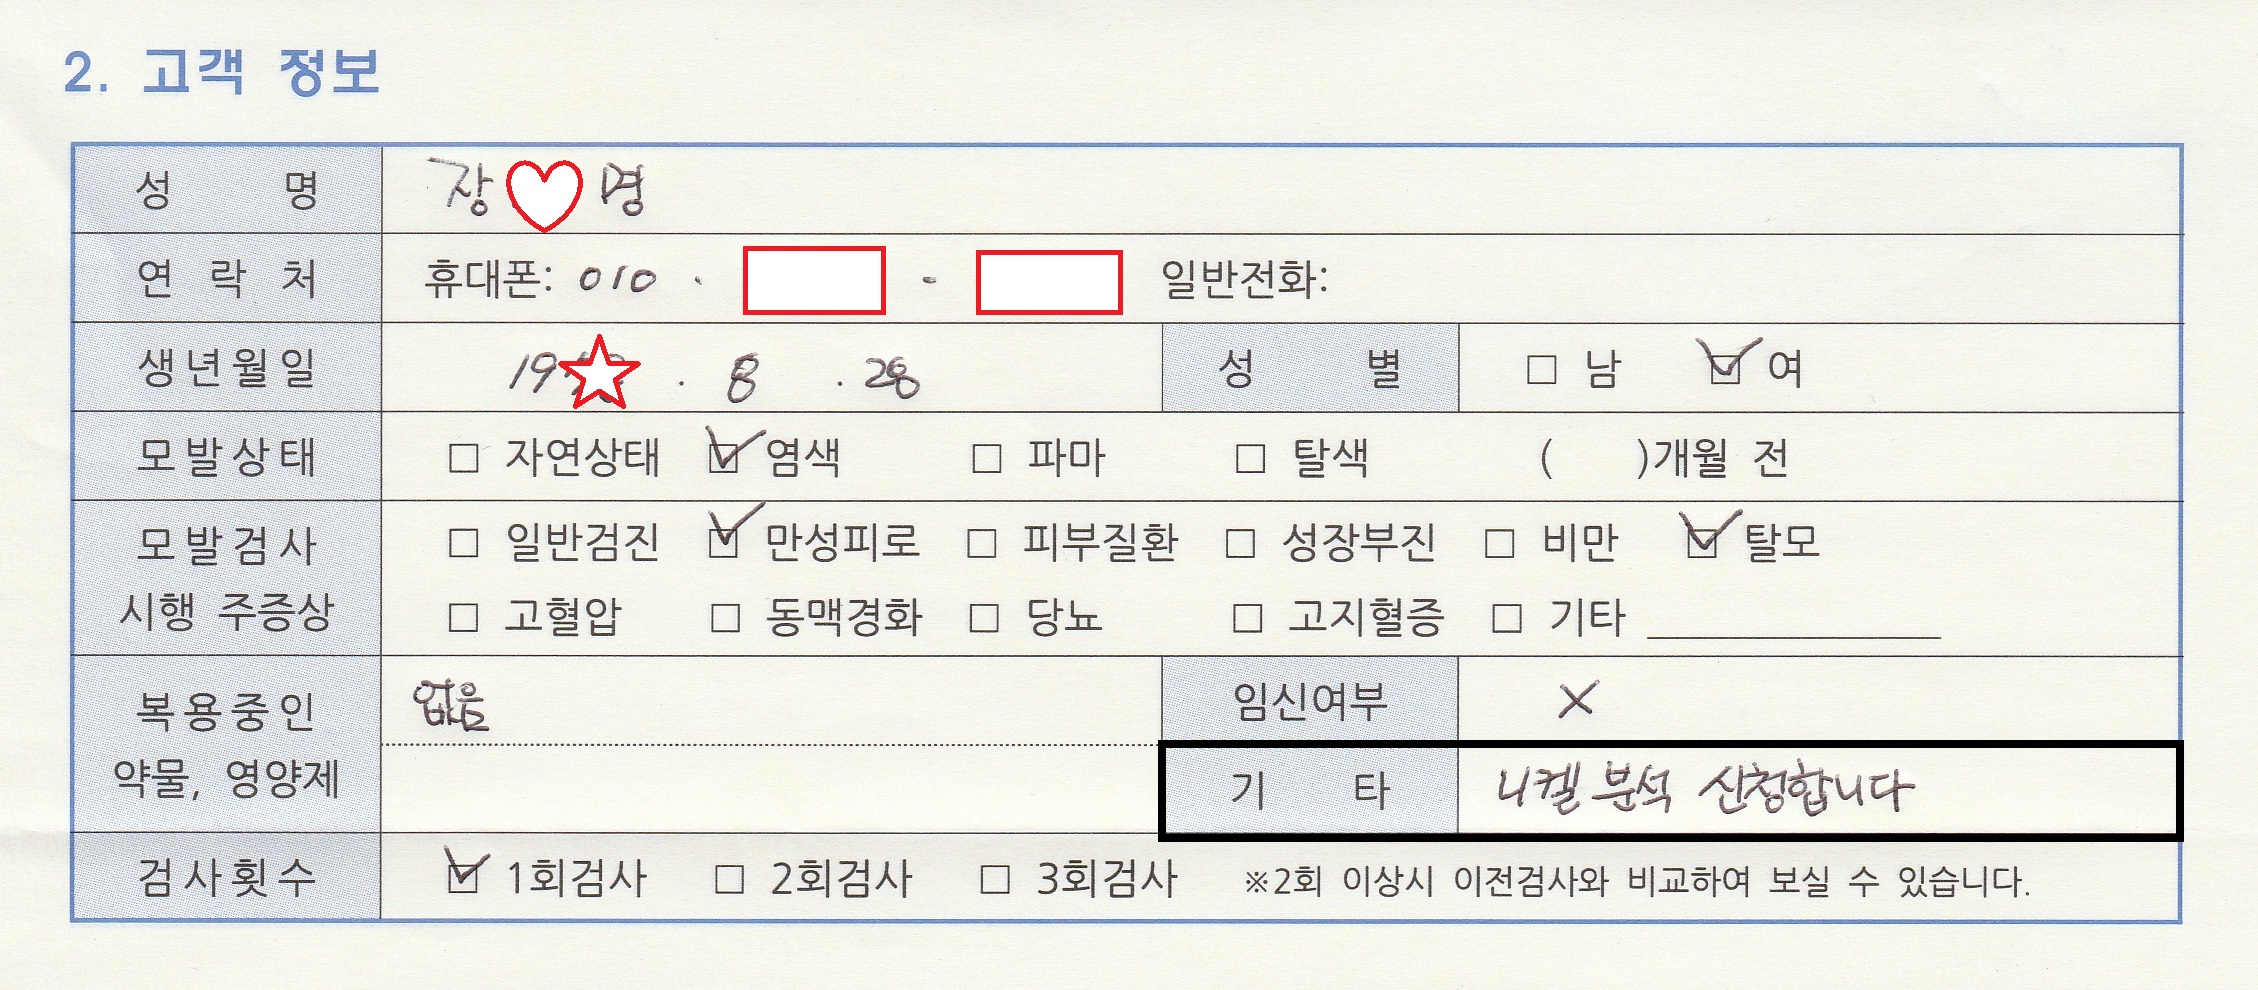 2. 고객 정보
성 명 장 명
연 락 처 휴대폰: 010 · - 일반전화:
생년월일 19 . 8 . 28 성 별 □ 남 ☑ 여
모발상태 □ 자연상태 ☑ 염색 □ 파마 □ 탈색 ( )개월 전
모발검사 □ 일반검진 ☑ 만성피로 □ 피부질환 □ 성장부진 □ 비만 ☑ 탈모
시행 주증상 □ 고혈압 □ 동맥경화 □ 당뇨 □ 고지혈증 □ 기타
복용중인 없음 임신여부 ×
약물, 영양제 기 타 니켈 분석 신청합니다
검사횟수 ☑ 1회검사 □ 2회검사 □ 3회검사 ※2회 이상시 이전검사와 비교하여 보실 수 있습니다.